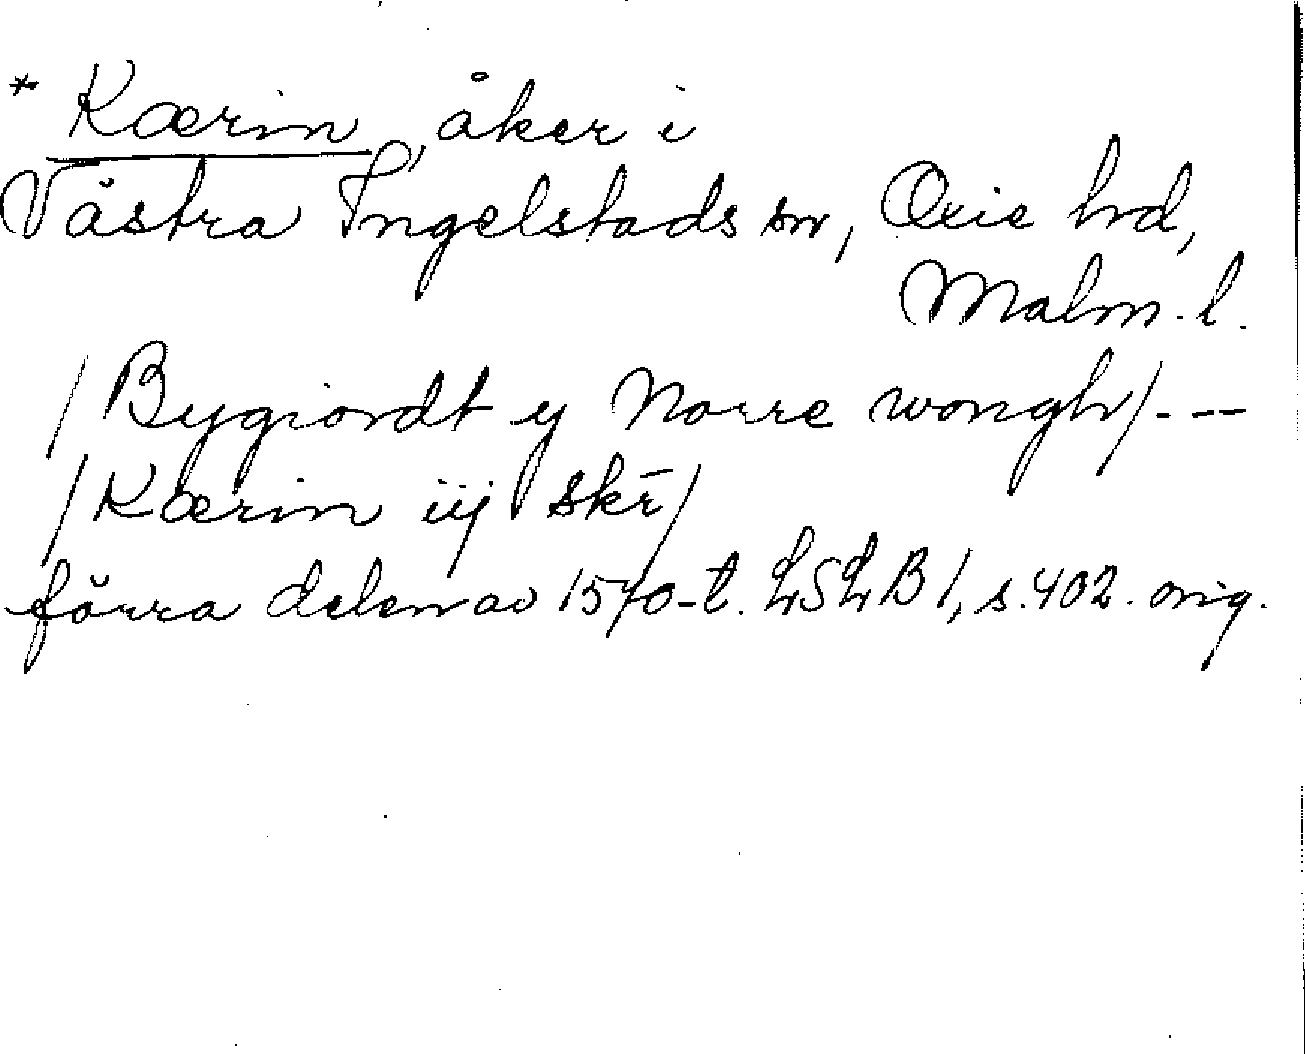 * Kærin, åker i
Västra Ingelstads sn, Oxie hd,
Malm. l.
/Bygiordt y Norre wongh/---
/Kærin iij skr̄/
förra delen av 1570-t. LSLB1, s. 402. orig.